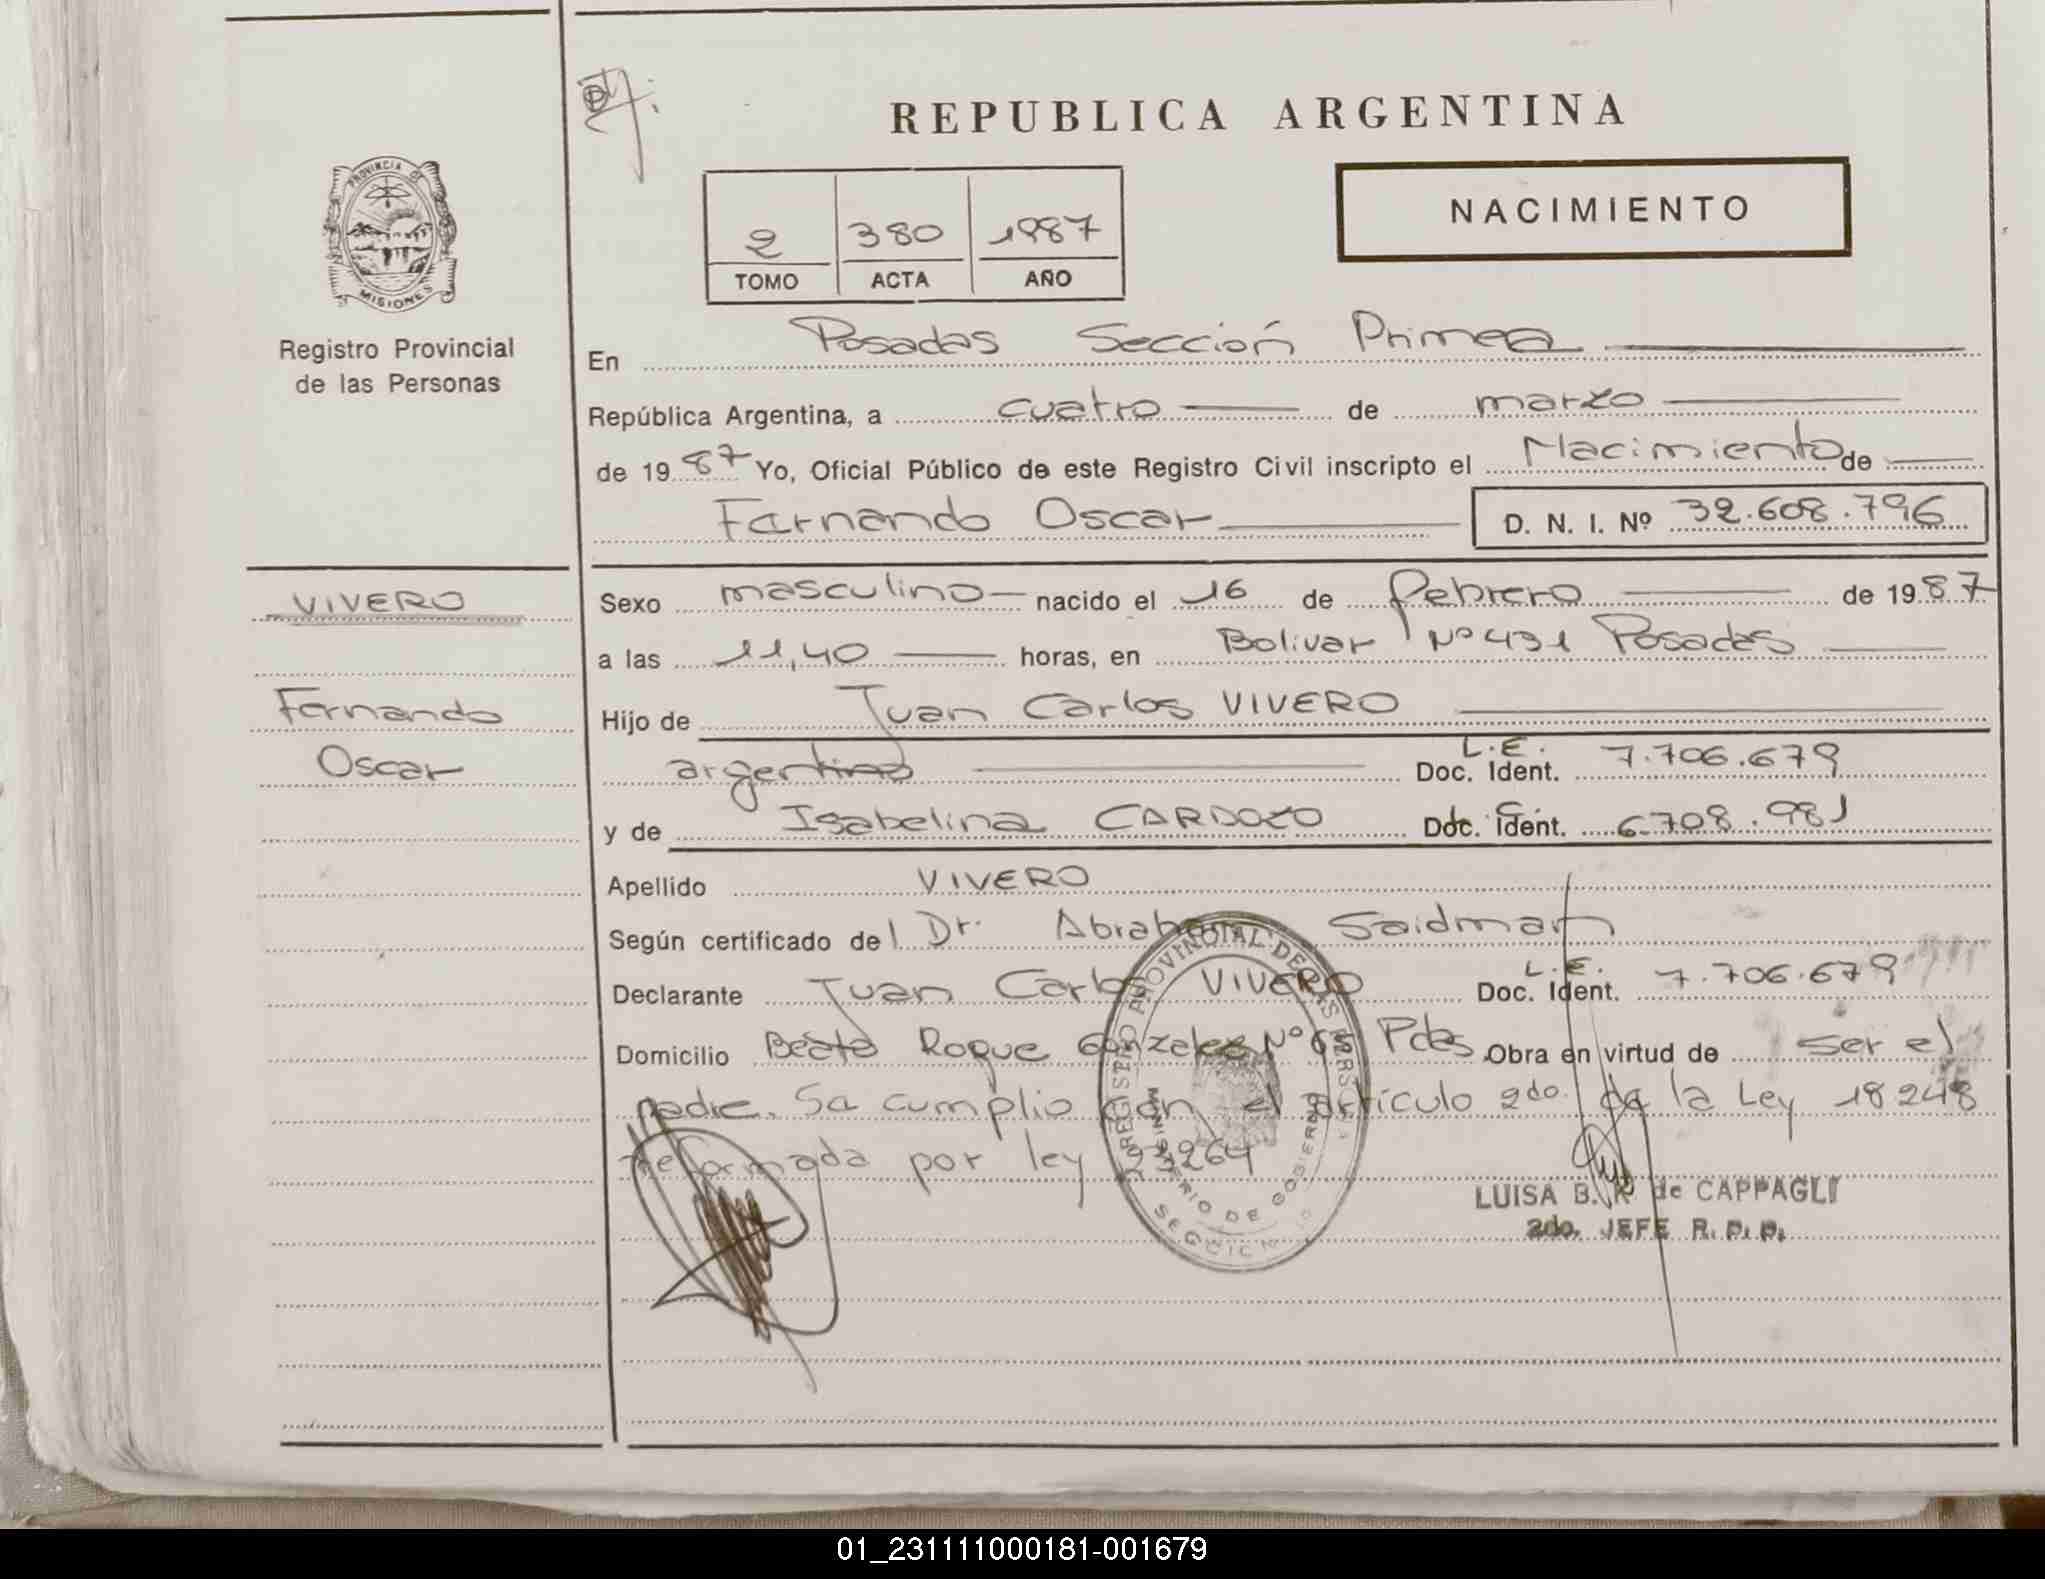 REPUBLICA ARGENTINA
NACIMIENTO
2 380 1987
TOMO ACTA AÑO
PROVINCIA DE
MISIONES
Registro Provincial
de las Personas
En Posadas Sección Primera
República Argentina, a cuatro de marzo
de 1987 Yo, Oficial Público de este Registro Civil inscripto el Nacimiento de
Fernando Oscar D. N. I. Nº 32.608.796
VIVERO
Fernando
Oscar
Sexo masculino nacido el 16 de febrero de 1987
a las 11,40 horas, en Bolivar Nº 431 Posadas
Hijo de Juan Carlos VIVERO
argentino L.E. Doc. Ident. 7.706.679
y de Isabelina CARDOZO Doc. Ident. C. 6.708.981
Apellido VIVERO
Según certificado del Dr. Abraham Saidman
Declarante Juan Carlos VIVERO L.E. Doc. Ident. 7.706.679
Domicilio Beato Roque Gonzalez Nº 65 Pdas Obra en virtud de ser el
padre. Se cumplio con el artículo 2do. de la Ley 18248
reformada por ley 23264
REGISTRO PROVINCIAL DE LAS PERSONAS
MINISTERIO DE GOBIERNO
LUISA B. K de CAPPAGLI
2do. JEFE R. P. P.
01_231111000181-001679